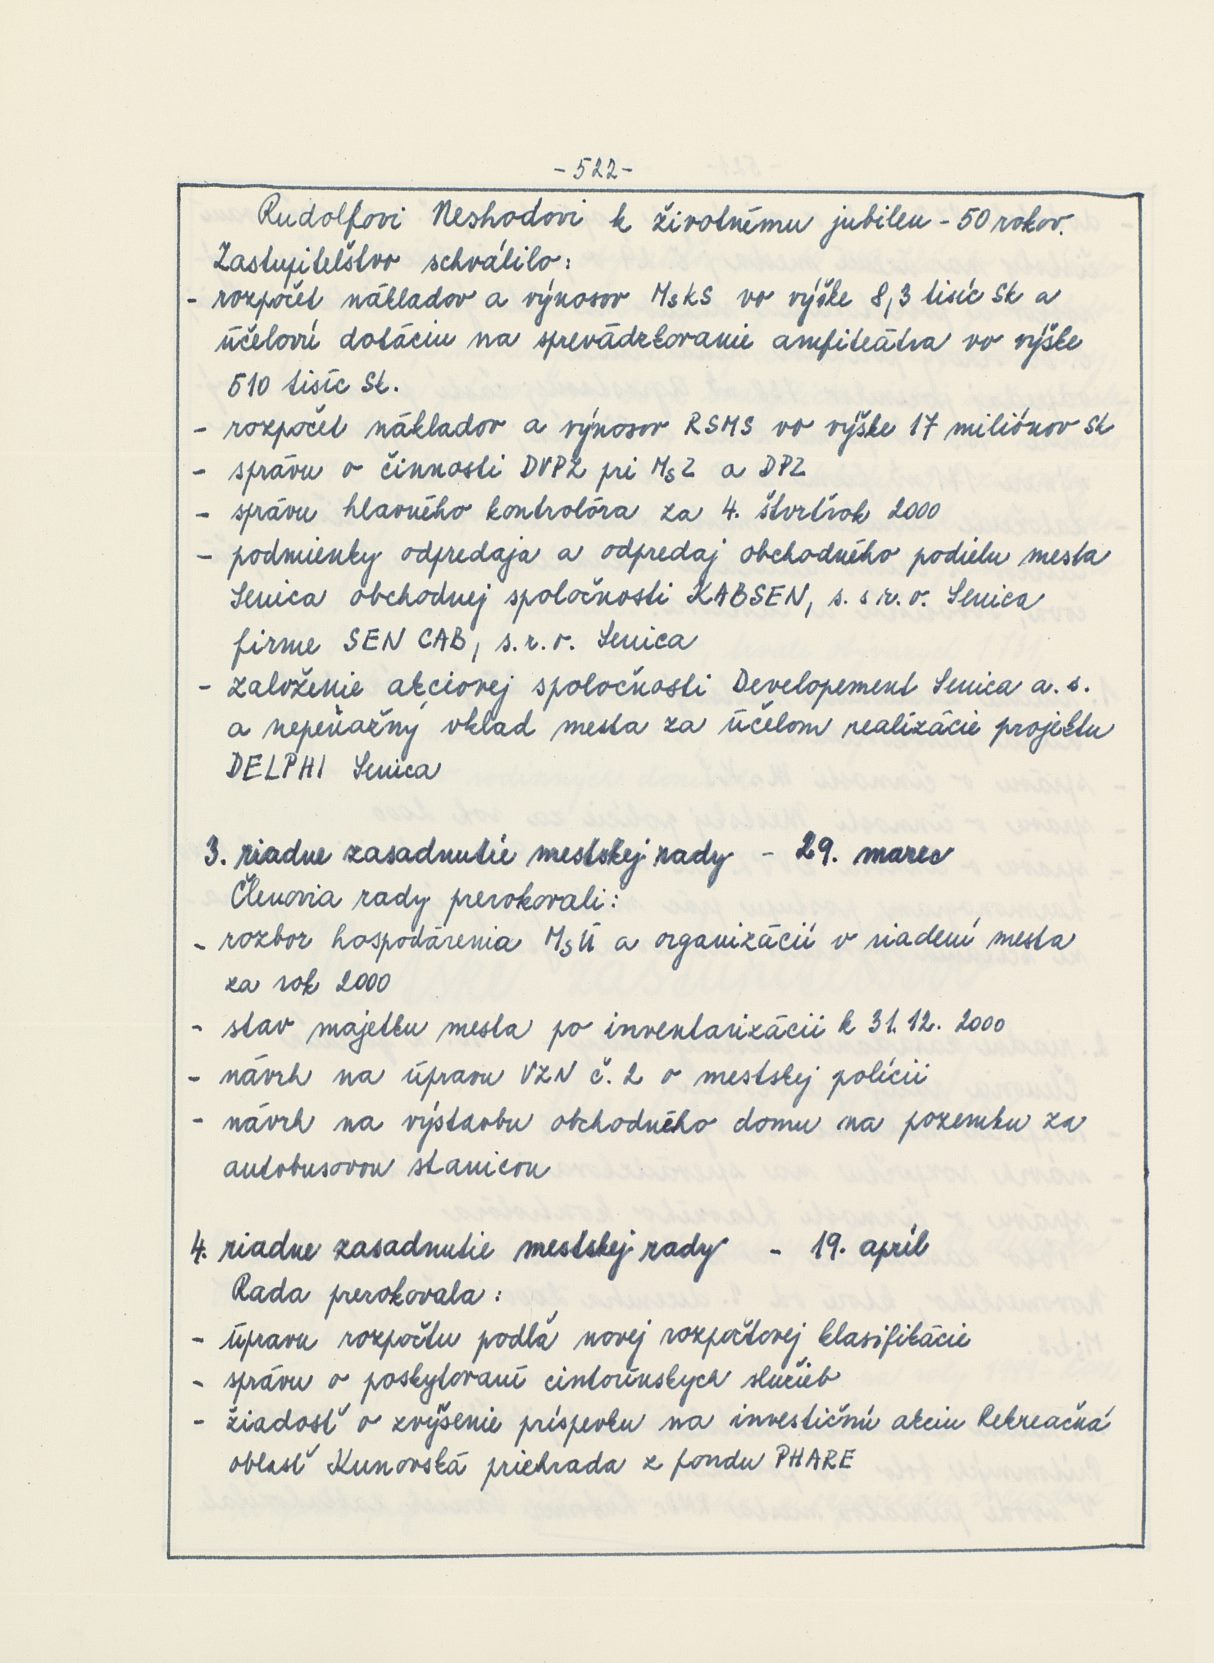 -522-
Rudolfovi Neshodovi k životnému jubileu - 50 rokov.
Zastupiteľstvo schválilo:
- rozpočet nákladov a výnosov MsKS vo výške 8,3 tisíc Sk a
účelovú dotáciu na sprevádzkovanie amfiteátra vo výške
510 tisíc Sk.
- rozpočet nákladov a výnosov RSMS vo výške 17 miliónov Sk
- správu o činnosti DVPZ pri MsZ a DPZ
- správu hlavného kontrolóra za 4. štvrťrok 2000
- podmienky odpredaja a odpredaj obchodného podielu mesta
Senica obchodnej spoločnosti KABSEN, s. s r. o. Senica
firme SEN CAB, s. r. o. Senica
- založenie akciovej spoločnosti Developement Senica a. s.
a nepeňažný vklad mesta za účelom realizácie projektu
DELPHI Senica
3. riadne zasadnutie mestskej rady - 29. marec
Členovia rady prerokovali:
- rozbor hospodárenia MsÚ a organizácií v riadení mesta
za rok 2000
- stav majetku mesta po inventarizácii k 31. 12. 2000
- návrh na úpravu VZN č. 2 o mestskej polícii
- návrh na výstavbu obchodného domu na pozemku za
autobusovou stanicou
4. riadne zasadnutie mestskej rady - 19. apríl
Rada prerokovala:
- úpravu rozpočtu podľa novej rozpočtovej klasifikácie
- správu o poskytovaní cintorínskych služieb
- žiadosť o zvýšenie príspevku na investičnú akciu Rekreačná
oblasť Kunovská priehrada z fondu PHARE